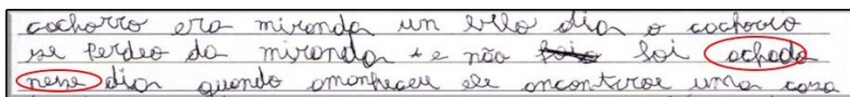 cachorro era miranda un belo dia o cachorro
se perdeo da miranda e não foi achado
nesse dia quando amanheceu ele encontrou uma casa